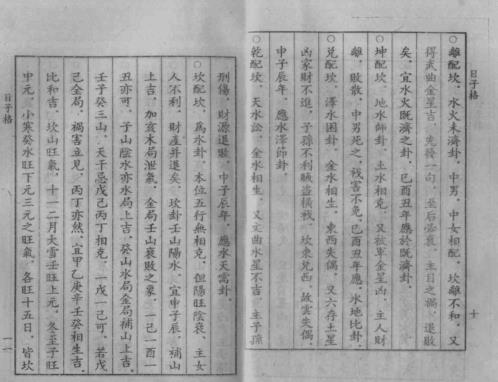 日子格
十
○離配坎、水火未濟卦、中男、中女相配、坎離不和、又
得武曲金星吉、先發一旬、至后必衰、主目之禍、退敗
矣、宜水火既濟之卦、巳酉丑年應於既濟卦。
○坤配坎、地水師卦、土水相克、又破軍金星凶、主人財
離、敗散、中男死之、殘害不免、巳酉丑年應、水地比卦。
○兌配坎、澤水困卦、金水相生、東西失偶、又六存土星
凶、家財不進、子孫不利賊盜橫栈、坎東兌西、故云失偶、
申子辰年、應水澤節卦。
○乾配坎、天水訟、金水相生、又文曲水星不吉、主子孫
刑傷、財源退敗、申子辰年、應水天需卦。
○坎配坎、為水卦、本位五行無相克、但陽旺陰衰、主女
人不利、財產并退矣、坎卦壬山陽水、宜申子辰、補山
上吉、加亥未局泄氣、金局壬山衰敗之象、一己一酉一
丑亦可、子山陰水亦水局上吉、癸山水局金局補山上吉、
壬子癸三山、天干忌戊己丙丁相克、一戊一己可、若戊
己全局、禍害立見、丙丁亦然、宜甲乙庚辛壬癸相生吉、
比和吉、坎山旺氣、十一二月大雪壬旺上元、冬至子旺
中元、小寒癸水旺下元三元之旺氣、各旺十五日、皆坎
日子格
十一